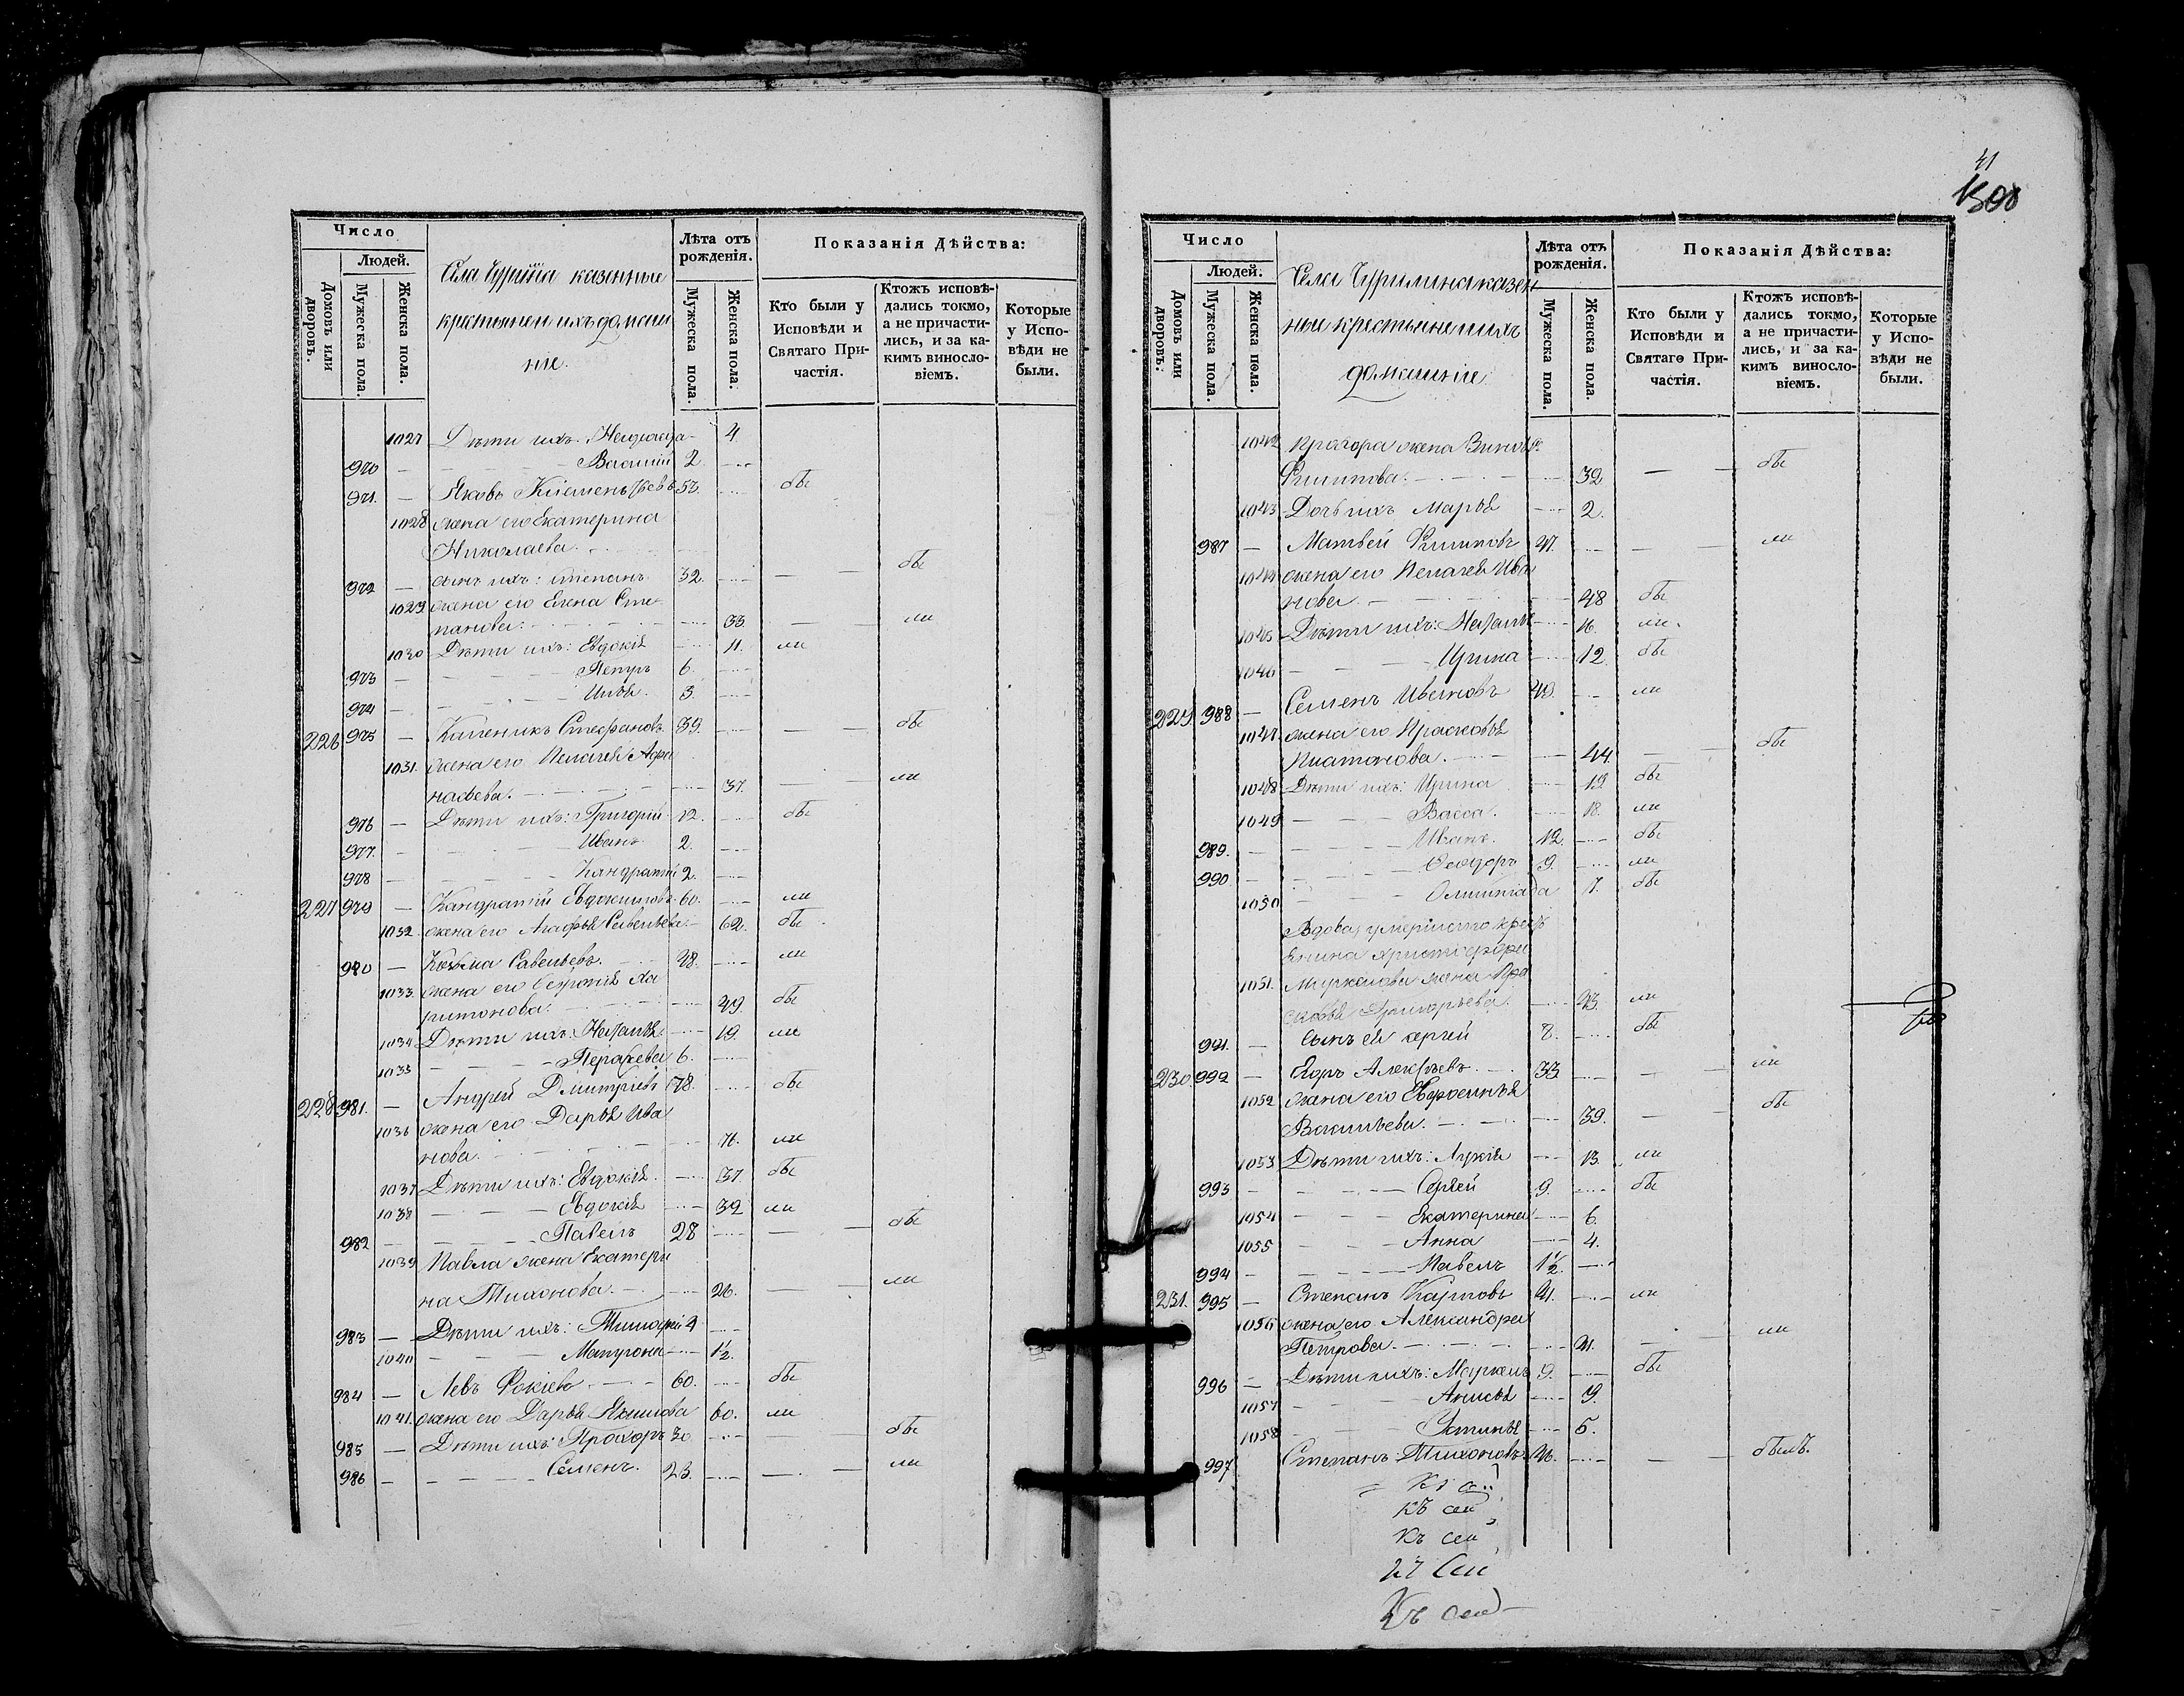 Число
Людей.
Домовъ или дворовъ.
Мужеска пола.
Женска пола.
Села казенные
крестьяне и ихъ домаш
ніе.
Лѣта отъ рожденія.
Мужеска пола.
Женска пола.
Показанія Дѣйства:
Кто были у Исповѣди и Святаго Причастія.
Ктожъ исповѣдались токмо, а не причастились, и за какимъ винословіемъ.
Которые у Исповѣди не были.
1027 Дѣти ихъ: Надежда 4
970 — Василій 2
971. — Яковъ Клементьевъ 53. бы
1028 жена его Екатерина
Николаева
972 — сынъ ихъ: Степанъ 32. — бы
1029 жена его Елена Сте
панова 33 — ли
1030 Дѣти ихъ: Евдокія 11. ли
973 — Петръ 6
974 — Илья 3
226 975 — Стефановъ 39. — бы
1031. жена его Пелагея
37. — ли
976 — Дѣти ихъ: Григорій 12. бы
977. — Иванъ 2.
978 — Кондратій 2.
227 979 — Кондратій Евдокимовъ 60. ли
1032 жена его Агафья Савельева 62. бы
980 — Козьма Савельевъ 48. ли
1033. жена его Ха
ритонова 49. бы
1034 Дѣти ихъ: Наталья 19. ли
1035 — 6.
228 981. — Андрей Дмитріевъ 78. бы
1036 жена его Дарья Ива
нова 71. ли
1037 Дѣти ихъ: Евдокія 37. бы
1038 — Евдокія 32 ли
982 — Павелъ 28 — бы
1039 Павла жена Екатери
на Тихонова 26. — ли
983 — Дѣти ихъ: Тимофей 4
1040 — Матрона 1½.
984 — Левъ Фокіевъ 60. бы
1041. жена его Дарья Якимова 60. ли
985 — Дѣти ихъ: Прохоръ 30 — бы
986 — Семенъ. 23. — ли
41
Число
Людей.
Домовъ или дворовъ.
Мужеска пола.
Женска пола.
Села Чурилина казен
ные крестьяне и ихъ
домашніе
Лѣта отъ рожденія.
Мужеска пола.
Женска пола.
Показанія Дѣйства:
Кто были у Исповѣди и Святаго Причастія.
Ктожъ исповѣдались токмо, а не причастились, и за какимъ винословіемъ.
Которые у Исповѣди не были.
1042 Прохора жена
Филипова 32 — бы
1043 Дочь ихъ Марья 2.
987 — Матвей Филиповъ 47. — ли
1044 жена его Пелагея Ива
нова 48 бы
1045 Дѣти ихъ: Наталья 16. ли
1046 — Ирина 12. бы
229 988 — Семенъ Ивановъ 49. ли
1047 жена его Прасковья
Платонова. 44. — бы
1048 Дѣти ихъ: Ирина 19 бы
1049 — Васса. 18. ли
989. — Иванъ. 12. бы
990 — Ѳеодоръ 9. ли
1050 — Олимпіада 7. бы
Вдова умершаго кресть
янина Христофора
1051. жена Пра
сковья Григорьева. 43. ли
991. — Сынъ ея Сергей 8. бы
230. 992 — Егоръ Алексѣевъ 33 — ли
1052 жена его Евфросинья
Васильева. 39. — бы
1053 Дѣти ихъ: Лукія 13. ли
993 — Сергей 9. бы
1054 — Екатерина 6.
1055 — Анна 4.
994 — Павелъ 1½
231. 995 — Степанъ Карповъ 41. ли
1056 жена его Александра
Петрова. 41. — ли
996 — Дѣти ихъ: Маркелъ 9. бы
1057 — Анисья 9.
1058 — Устинья 5.
997 Степанъ Тихоновъ 46. — былъ.
къ сей
къ сей
къ сей
къ сей